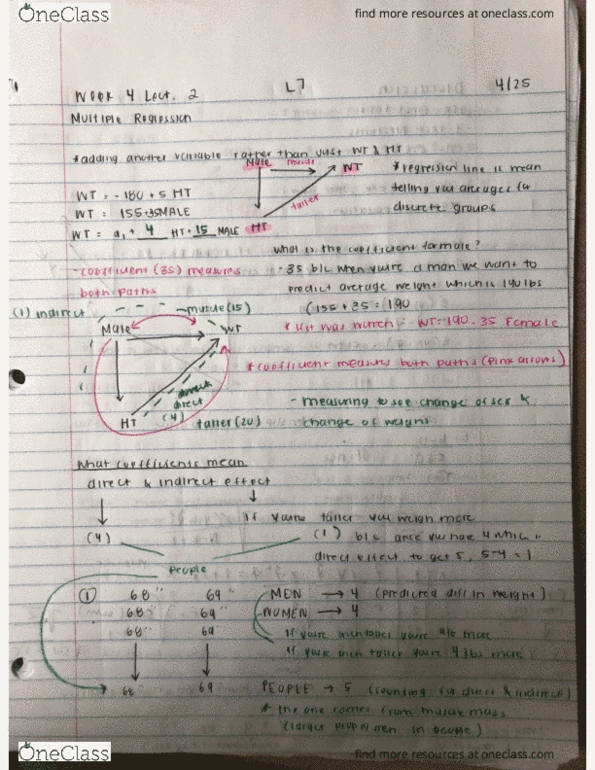 OneClass
find more resources at oneclass.com
Week 4 Lect. 2 L7 4/25
Multiple Regression
*adding another variable rather than just WT & HT
Male muscle WT
taller
HT
*regression line is mean
telling you averages for
discrete groups
WT = -180 + 5 HT
WT = 155+35MALE
WT = a, + 4 HT + 15 MALE
What is the coefficient for male?
-coefficient (35) measures
both paths
- 35 b/c when you're a man we want to
predict average weight which is 190 lbs
(155 + 35 = 190
(1) indirect
muscle (15)
Male WT
direct
(4)
HT taller (20)
WT=190-35 Female
*coefficient measures both paths (pink arrows)
- measuring to see change of sex &
change of weight
What coefficients mean
direct & indirect effect
(4)
If you're taller you weigh more
(1) b/c once you have 4 which is
direct effect to get 5, 5-4=1
People
(1) 68" 69" MEN → 4 (predicted diff in weight)
68" 69" WOMEN → 4
68" 69
If you're inch taller you're 4lb more
If you're inch taller you're 4 lbs more
68" 69 PEOPLE → 5 (counting for direct & indirect)
* the one comes from muscle mass
(larger prop of men in people)
OneClass
find more resources at oneclass.com